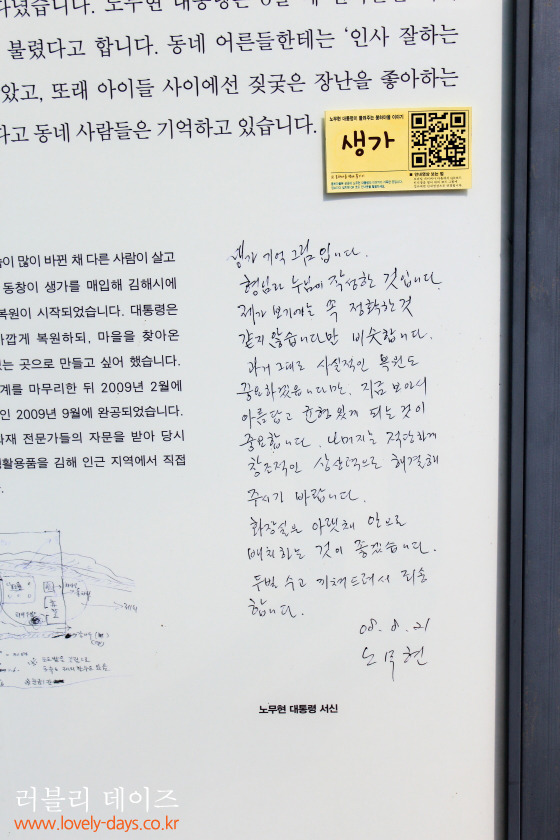 다녔습니다. 노무현 대통령은
불렸다고 합니다. 동네 어른들한테는 ‘인사 잘하는
았고, 또래 아이들 사이에선 짖궂은 장난을 좋아하는
다고 동네 사람들은 기억하고 있습니다.
노무현 대통령의 들려주는 봉하마을 이야기
생가
습이 많이 바뀐 채 다른 사람이 살고
동창이 생가를 매입해 김해시에
복원이 시작되었습니다. 대통령은
가깝게 복원하되, 마을을 찾아온
있는 곳으로 만들고 싶어 했습니다.
계를 마무리한 뒤 2009년 2월에
인 2009년 9월에 완공되었습니다.
화재 전문가들의 자문을 받아 당시
생활용품을 김해 인근 지역에서 직접
생가 기억 그림 입니다.
형님과 누님이 작성한 것입니다.
제가 보기에는 꼭 정확한 것
같지 않습니다만 비슷합니다.
과거 그대로 사실적인 복원도
중요하겠습니다만, 지금 보아서
아름답고 균형있게 되는 것이
중요합니다. 나머지는 적당하게
창조적인 상상력으로 해결해
주시기 바랍니다.
화장실은 아랫채 앞으로
배치하는 것이 좋겠습니다.
두벌 수고 끼쳐드려서 죄송
합니다.
08. 8. 21
노무현
노무현 대통령 서신
러블리 데이즈
www.lovely-days.co.kr